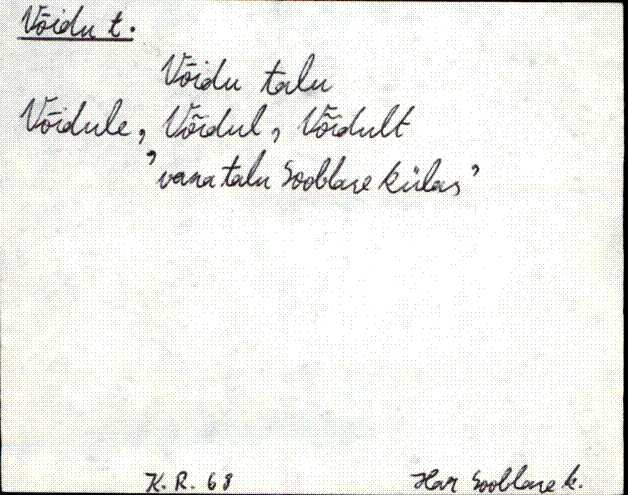 Võidu t.
Võidu talu
Võidule, Võidul, Võidult
'vana talu Sooblase külas'
K. R. 68
Har Sooblase k.